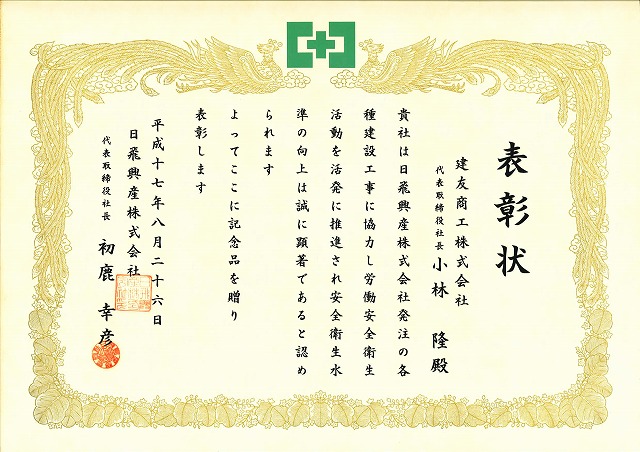 表彰状
建友商工株式会社
代表取締役社長 小林 隆殿
貴社は日飛興産株式会社発注の各
種建設工事に協力し労働安全衛生
活動を活発に推進され安全衛生水
準の向上は誠に顕著であると認め
られます
よってここに記念品を贈り
表彰します
平成十七年八月二十六日
日飛興産株式会社
代表取締役社長 初鹿 幸彦